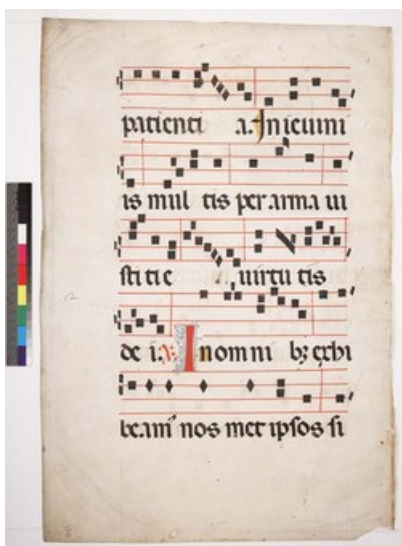 patienti a. In ieiuni
is mul tis per arma iu
sti tie uirtu tis
de i. A In omni bꝫ exhi
beam nos met ipsos si